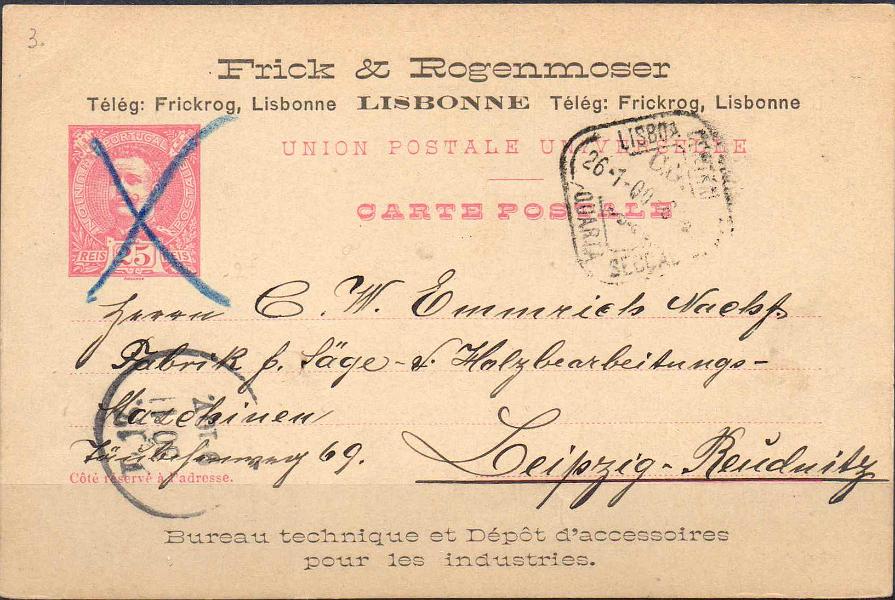 3.
Frick & Rogenmoser
Télég: Frickrog, Lisbonne LISBONNE Télég: Frickrog, Lisbonne
PORTUGAL
REIS 25 REIS
UNION POSTALE UNIVERSELLE
CARTE POSTALE
LISBOA CENTRAL
26-1-00
QUARTA SECÇÃO
Herrn C. W. Emmrich Nachf
Fabrik f. Säge- & Holzbearbeitungs-
Maschinen
69.
Leipzig-Reudnitz
Côté réservé à l'adresse.
Bureau technique et Dépôt d'accessoires
pour les industries.